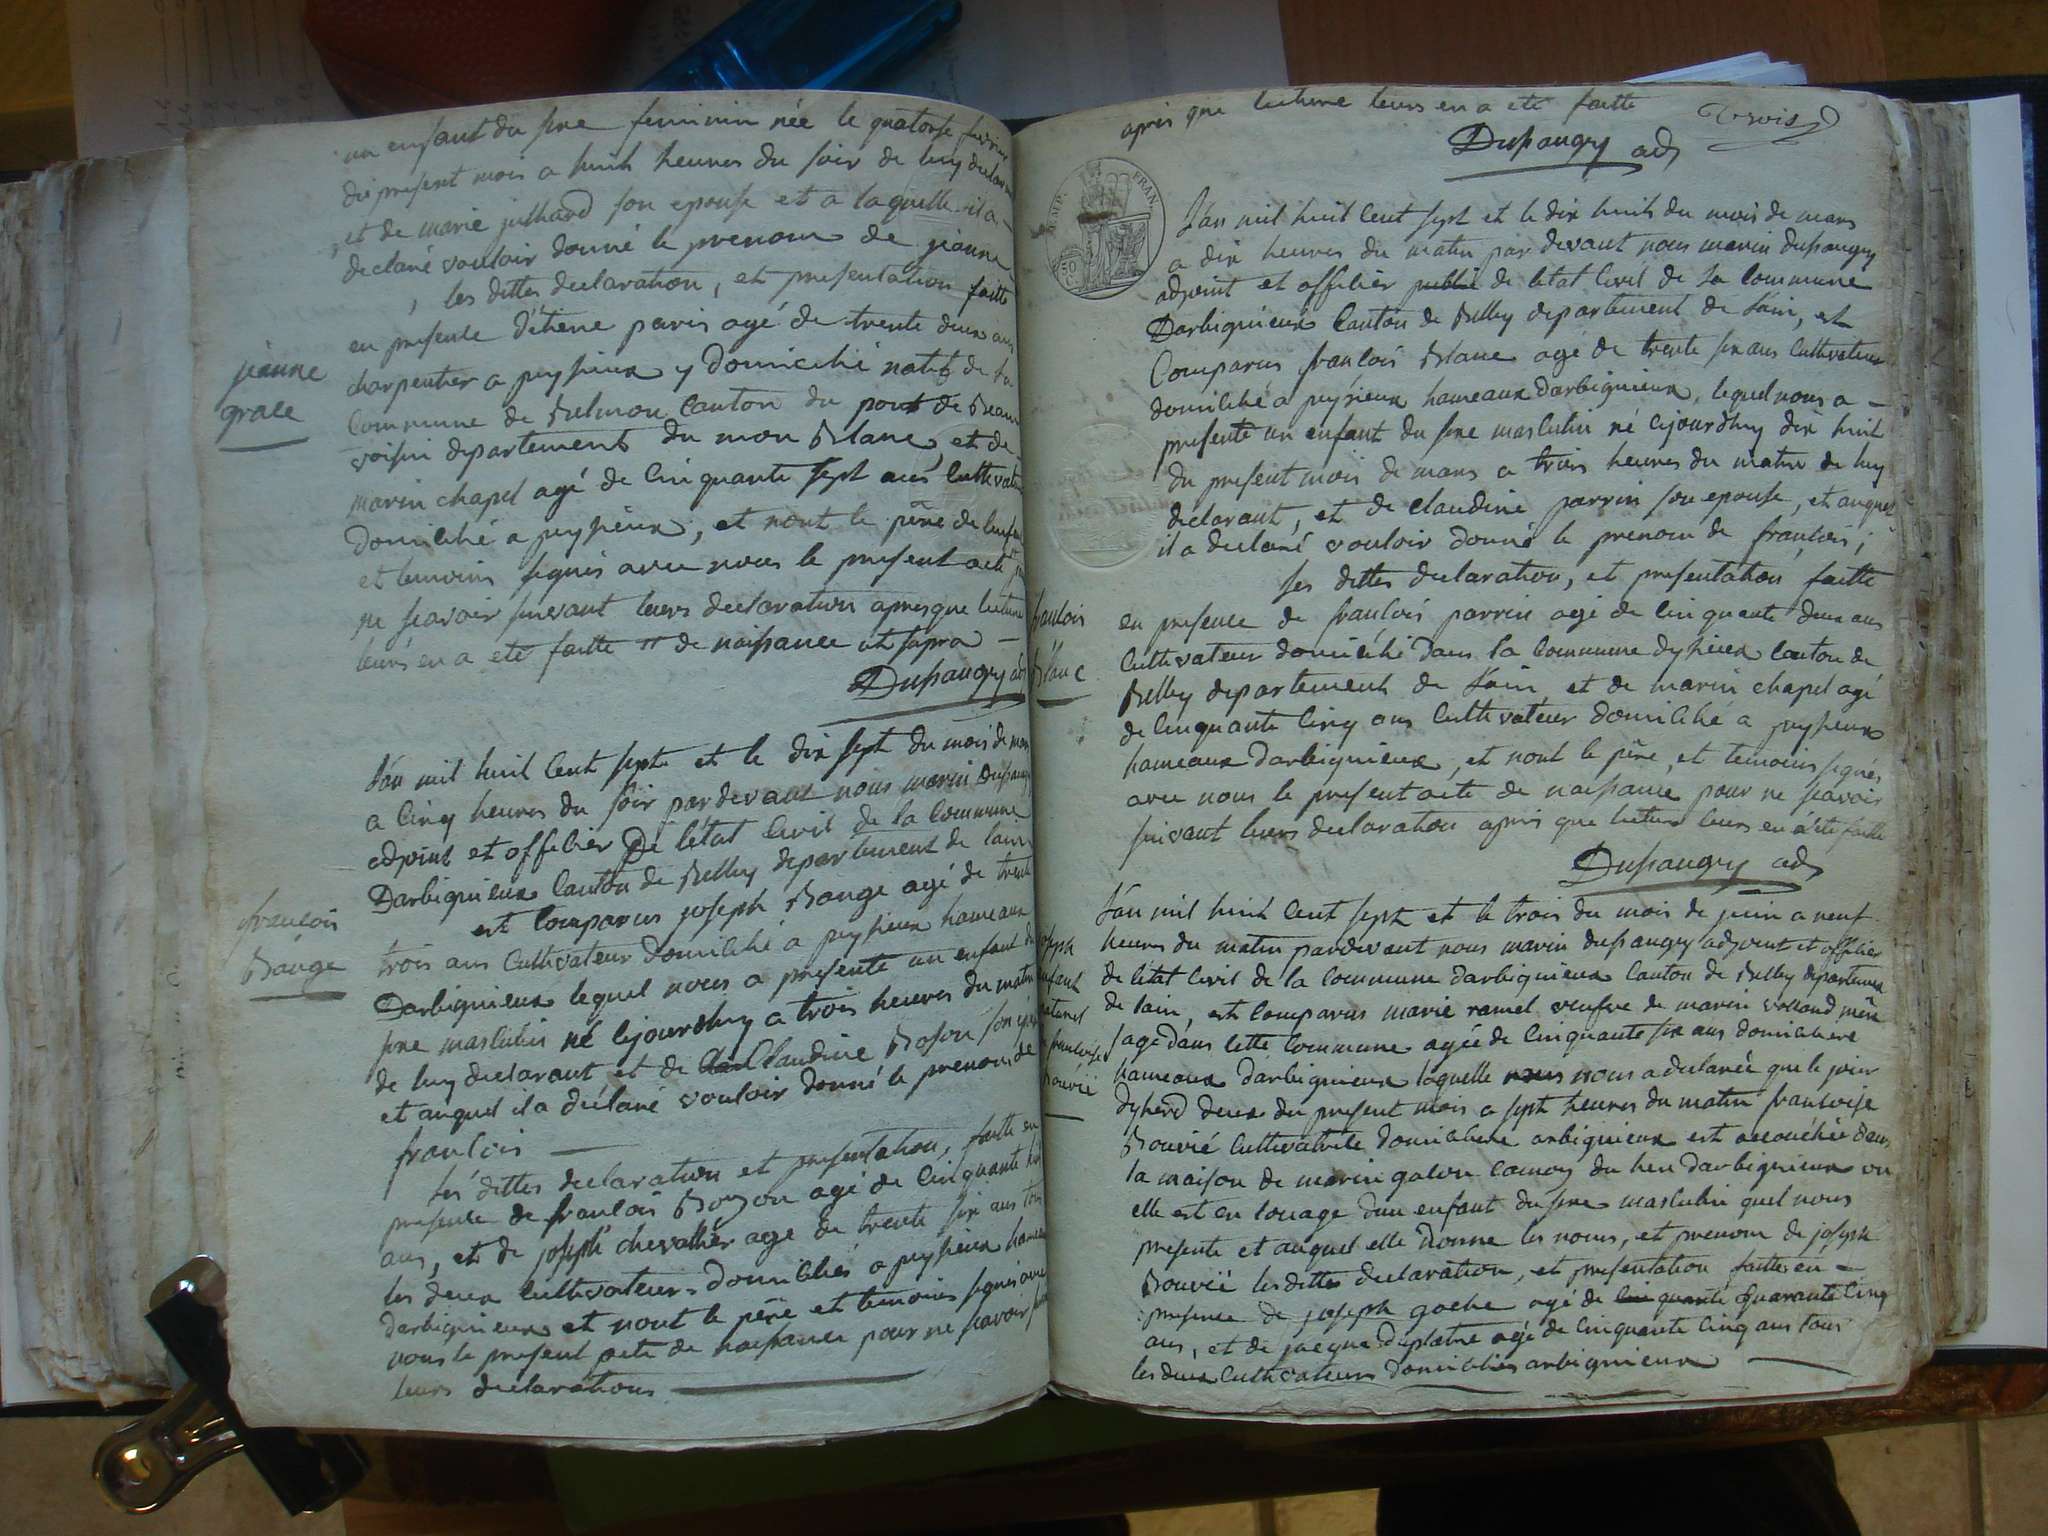 un enfant du sexe feminin née le quatorse
du present mois a huit heures du soir de luy declarant
et de marie julliard son epouse et a laquelle il a
declaré vouloir donné le prenom de jeanne
les dittes declaration, et presentation faitte
en presence d'étiene paris agé de trente deux ans
charpentier a peysieux y domicilié natif de la
jeanne
grace
Commune de Belmon Canton du pont de Beau
voisin departement du mon Blanc, et de
marin chapel agé de Cinquante sept ans Cultivateur
domicilié a peysieux, et nont le père de lenfant
et temoins signés avec nous le present acte
ne scavoir suivant leurs declaration apres que lecture
leurs en a été faitte // de naissance ut supra
Dupaugey adj
L'an mil huit Cent sept et le dix sept du mois de mars
a Cinq heures du soir pardevant nous marin dupaugey
adjoint et officier De l'état Civil de la Commune
Darbignieux Canton de Belley departement de lain
est Comparus joseph Bauge agé de trente
françois
Bauge
trois ans Cultivateur domicilié a peysieux hameaux
Darbignieux lequel nous a presenté un enfant du
sexe masculin né cejourdhuy a trois heures du matin
de luy declarant et de Claudine Boson son
et auquel il a déclaré vouloir donné le prenom de
francois
les dittes declaration et presentation, faitte en
presence de francois Bozon agé de Cinquante
ans, et de joseph chevallier age de trente six ans tous
les deux Cultivateurs domiciliés a peysieux hameaux
darbignieux et nont le père et temoins signés avec
nous le present acte de naissance pour ne scavoir
leurs declarations
apris que lecture leurs en a été faitte
Dupaugey adj
TIMP.
FRAN.
50
C.
L'an mil huit Cent sept et le dix huit du mois de mars
a dix heures du matin pardevant nous marin dupaugey
adjoint et officier public de létat Civil de la Commune
Darbignieux Canton de Belley departement de l'ain, est
Comparus francois Blanc agé de trente six ans Cultivateur
domicilié a peysieux hameaux darbignieux, lequel nous a
presenté un enfant du sexe masculin né cejourdhuy dix huit
du present mois de mars a trois heures du matin de luy
declarant, et de claudine parrin son epouse, et auquel
il a declaré vouloir donné le prenom de francois;
les dittes declaration, et presentation faitte
francois
Blanc
en presence de francois parrin agé de cinquante deux ans
Cultivateur domicilié dans la Commune dysieux Canton de
Belley departement de l'ain, et de marin chapel agé
de Cinquante Cinq ans Cultivateur domicilié a peysieux
hameaux darbignieux, et nont le père, et temoins signés
avec nous le present acte de naissance pour ne scavoir
suivant leurs declaration apris que lecture leurs en a été faitte
Dupaugey adj
L'an mil huit Cent sept et le trois du mois de juin a neuf
heures du matin pardevant nous marin dupaugey adjoint et officier
joseph
enfant
naturel
de francoise
Bouvié
de létat Civil de la Commune darbignieux Canton de Belley departement
de lain, est Comparus marie ramel veufve de marin volland mère
sage dans cette Commune agée de Cinquante six ans domiciliere
hameaux darbignieux laquelle nous nous a declarée que le jour
dyherd deux du present mois a sept heures du matin francoise
Bouvié Cultivatrice domiciliere arbignieux est accouchée dans
la maison de marin galon du lieu darbignieux ou
elle est en louage dun enfant du sexe masculin quel nous
presente et auquel elle donne les noms, et prenom de joseph
Bouvié les dittes declaration, et presentation faittes en
presence de joseph goche agé de cinquante Quarante Cinq
ans, et de jacque duplatre agé de cinquante Cinq ans tous
les deux Cultivateurs domiciliés arbignieux